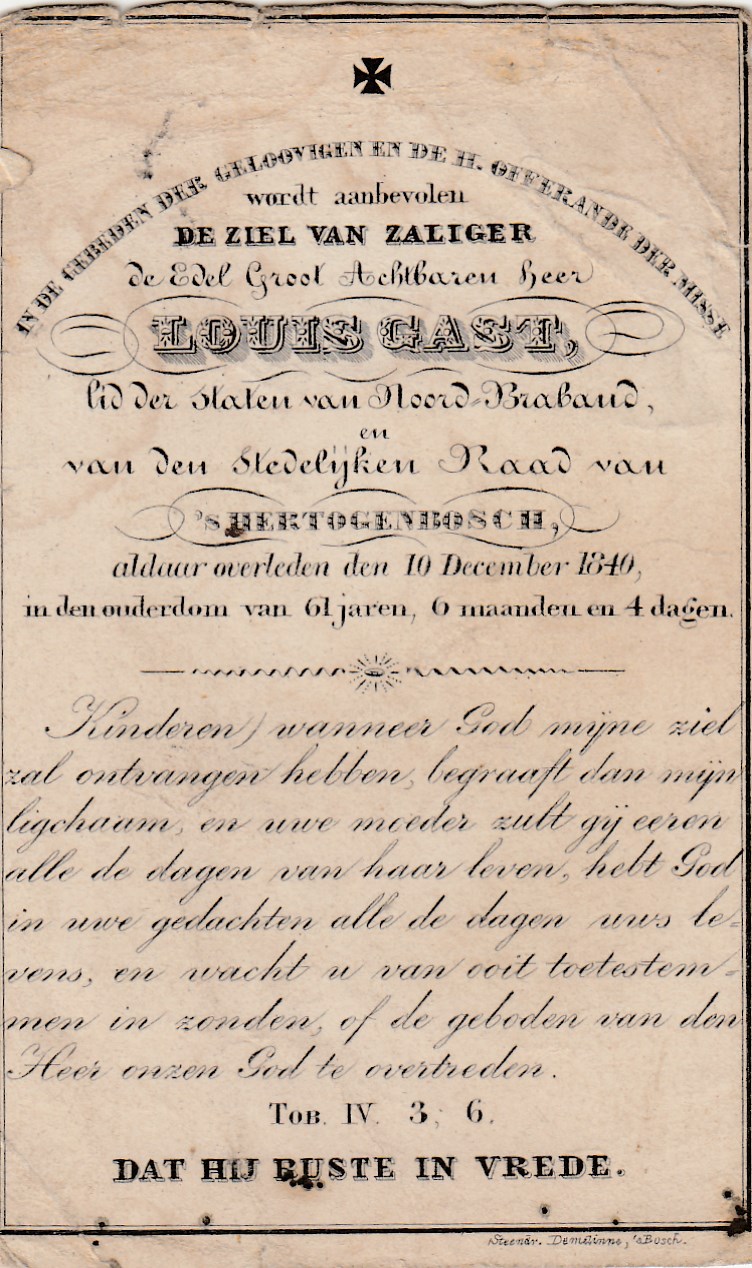 IN DE GEBEDEN DER GELOOVIGEN EN DE H. OFFERANDE DER MISSE
wordt aanbevolen
DE ZIEL VAN ZALIGER
de Edel Groot Achtbaren Heer
LOUIS GAST,
lid der Staten van Noord-Braband,
en
van den Stedelijken Raad van
'S HERTOGENBOSCH,
aldaar overleden den 10 December 1840,
in den ouderdom van 61 jaren, 6 maanden en 4 dagen.
Kinderen) wanneer God mijne ziel
zal ontvangen hebben, begraaft dan mijn
ligchaam, en uwe moeder zult gij eeren
alle de dagen van haar leven, hebt God
in uwe gedachten alle de dagen uws le-
vens, en wacht u van ooit toetestem-
men in zonden, of de geboden van den
Heer onzen God te overtreden.
TOB. IV. 3, 6.
DAT HIJ RUSTE IN VREDE.
Steendr. Demelinne, 'sBosch.